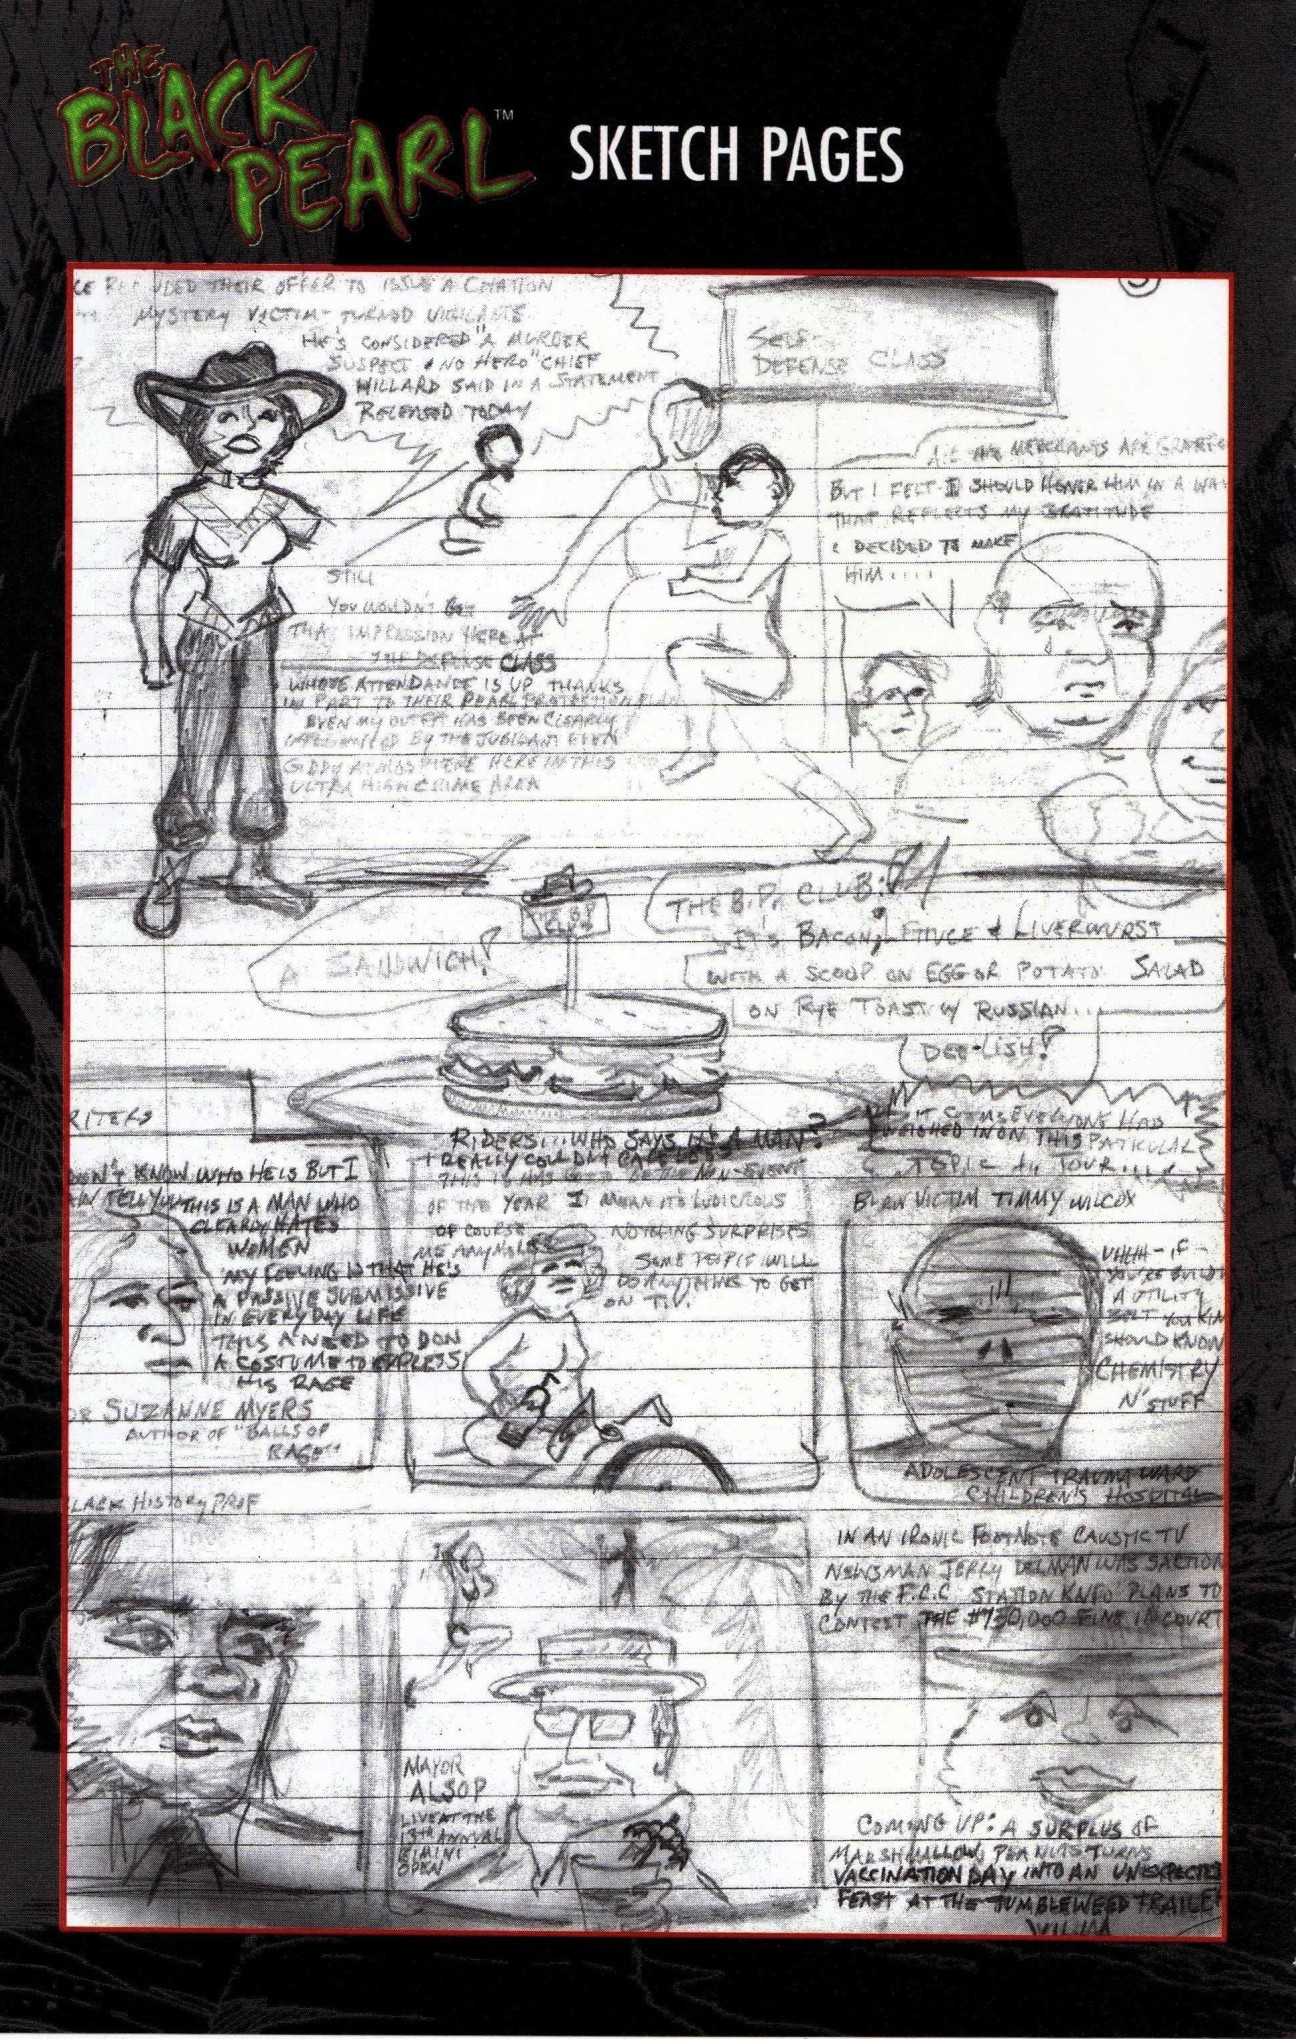 THE
BLACK
PEARL™
SKETCH PAGES
THEIR OFFER TO ISSUE A CITATION
MYSTERY VICTIM-TURNED VIGILANTE
HE'S CONSIDERED "A MURDER
SUSPECT & NO HERO" CHIEF
WILLARD SAID IN A STATEMENT
RELEASED TODAY
SELF
DEFENSE CLASS
ALL THE MERCHANTS ARE
BUT I FELT I SHOULD HONER HIM IN A WAY
THAT REFLECTS MY GRATITUDE
I DECIDED TO MAKE
HIM....
STILL
YOU WOULDN'T GET
THAT IMPRESSION HERE AT
THE DEFENSE CLASS
WHOSE ATTENDANCE IS UP THANKS
IN PART TO THEIR PEARL PROTECTION PLAN
EVEN MY OUTFIT HAS BEEN CLEARLY
INFLUENCED BY THE JUBILANT EVEN
GIDDY ATMOSPHERE HERE IN THIS
ULTRA HIGH CRIME AREA
A SANDWICH!
THE B.P. CLUB!
IT'S BACON, LETTUCE & LIVERWURST
WITH A SCOOP ON EGG OR POTATO SALAD
ON RYE TOAST W/ RUSSIAN...
DEE-LISH!
RITERS
DON'T KNOW WHO HE IS BUT I
TELL YOU THIS IS A MAN WHO
CLEARLY HATES
WOMEN
MY FEELING IS THAT HE'S
A PASSIVE SUBMISSIVE
IN EVERYDAY LIFE
THUS A NEED TO DON
A COSTUME TO EXPRESS
HIS RAGE
DR SUZANNE MYERS
AUTHOR OF "BALLS OF
RAGE"
RIDERS... WHO SAYS IT'S A MAN?
I REALLY COULDN'T CARE LESS
THIS HAS GOT TO BE THE NON-EVENT
OF THE YEAR I MEAN IT'S LUDICROUS
OF COURSE NOTHING SURPRISES
ME ANYMORE
SOME PEOPLE WILL
DO ANYTHING TO GET
ON T.V.
IT SEEMS EVERYONE HAS
WEIGHED IN ON THIS PATKULAL
TOPIC
BURN VICTIM TIMMY WILCOX
UHHH - IF -
YOU'RE BUILD
A UTILITY
BELT YOU KIN
SHOULD KNOW
CHEMISTRY
N' STUFF
ADOLESCENT TRAUMA WARD
CHILDREN'S HOSPITAL
BLACK HISTORY PROF
MAYOR
ALSOP
LIVE AT THE
13TH ANNUAL
BIMINI
OPEN
IN AN IRONIC FOOTNOTE CAUSTIC TV
NEWSMAN JERRY DELMAN WAS SACTION
BY THE F.C.C STATION KNFO PLANS TO
CONTEST THE $750,000 FINE IN COURT
COMING UP: A SURPLUS OF
MARSHMALLOW PEANUTS TURNS
VACCINATION DAY INTO AN UNEXPECTED
FEAST AT THE TUMBLEWEED TRAILER